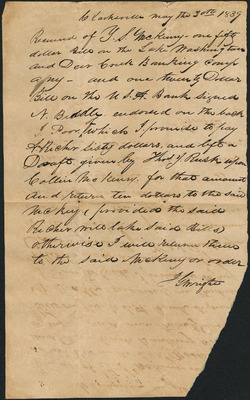 Clarksville May the 30th 1839
Received of T. S. McKiney one fifty
dollar Bill on the Lake Washington
and Deer Creek Banking Comp
apny - and one twenty Dollar
Bill on the U.S.A. Bank signed
N. Biddle endorsed on the back
Poor, which I promise to pay
A Richer sixty dollars, and lift a
Draft given by Thos J Rusk upon
Collin McKiney for that amount
and return ten dollars to the said
McKiney, provided the said
Richer will take said Bills
otherwise I will return them
to the said McKiney or order
Wright